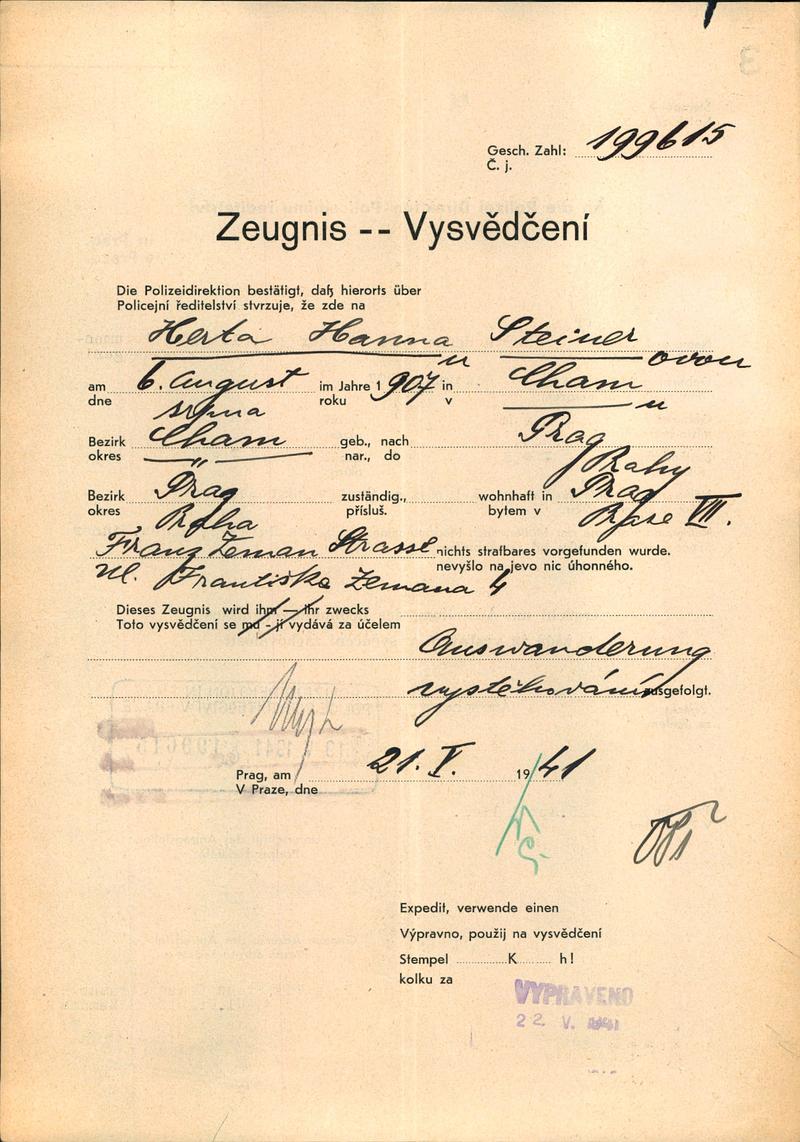 Gesch. Zahl: 199615
Č. j.
Zeugnis -- Vysvědčení
Die Polizeidirektion bestätigt, daß hierorts über
Policejní ředitelství stvrzuje, že zde na
Herta Hanna Steiner
u ovou
am 6. August im Jahre 1907 in Cham
dne srpna roku v u
Bezirk Cham geb., nach Prag
okres " nar., do Prahy
Bezirk Prag zuständig., wohnhaft in Prag
okres Praha přísluš. bytem v Praze VII.
Franz Zeman Strasse nichts strafbares vorgefunden wurde.
ul. Františka Zemana 4 nevyšlo na jevo nic úhonného.
Dieses Zeugnis wird ihm — ihr zwecks
Toto vysvědčení se mu - jí vydává za účelem
Auswanderung
vystěhování ausgefolgt.
Prag, am 21. V. 1941
V Praze, dne
Expedit, verwende einen
Výpravno, použij na vysvědčení
Stempel K h!
kolku za
VYPRAVENO
22. V. 1941